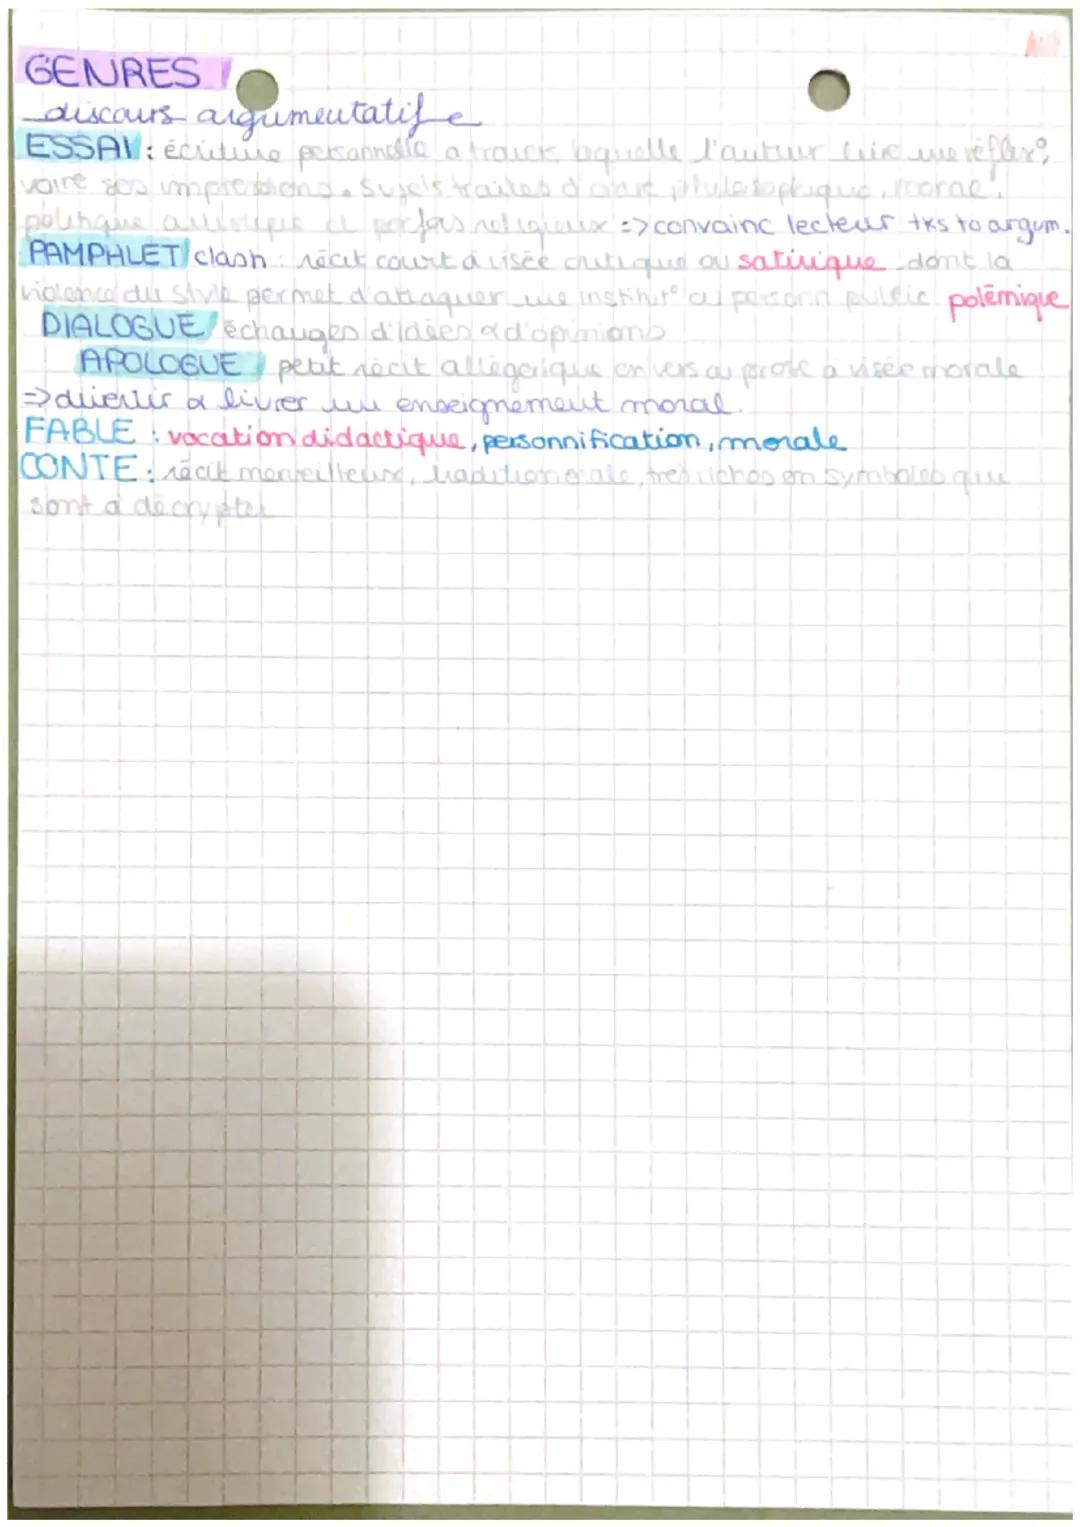 GENRES
discours argumentatif
ESSAI : écriture personnelle a travers laquelle l'auteur livre une réflex°,
voire ses impressions. Sujets traités d'ordre philosophique, morale,
politique et parfois religieux => convainc lecteur tks to argum.
PAMPHLET clash : récit court à visée critique ou satirique dont la
violence du style permet d'attaquer une institut° ou personn public polémique
DIALOGUE échanges d'idées & d'opinions
APOLOGUE petit récit allégorique en vers ou prose a visée morale
=> divertir & livrer un enseignement moral.
FABLE : vocation didactique, personnification, morale
CONTE : récit merveilleux, tradition orale, très riches en symboles qui
sont à décrypter